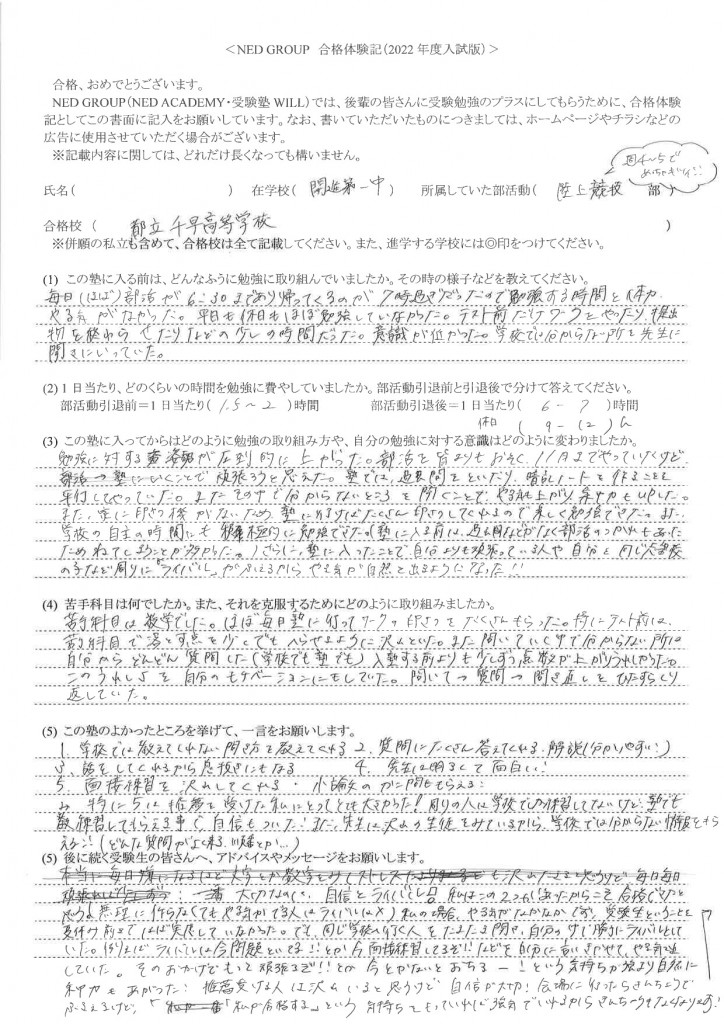 ＜NED GROUP 合格体験記（2022 年度入試版）＞
合格、おめでとうございます。
NED GROUP（NED ACADEMY・受験塾 WILL）では、後輩の皆さんに受験勉強のプラスにしてもらうために、合格体験
記としてこの書面に記入をお願いしています。なお、書いていただいたものにつきましては、ホームページやチラシなどの
広告に使用させていただく場合がございます。
※記載内容に関しては、どれだけ長くなっても構いません。
週4〜5で
めちゃキツイ!!
氏名（ ） 在学校（ 開進第一中 ） 所属していた部活動（ 陸上競技 部 ）
合格校（ 都立千早高等学校 ）
※併願の私立も含めて、合格校は全て記載してください。また、進学する学校には◎印をつけてください。
(1) この塾に入る前は、どんなふうに勉強に取り組んでいましたか。その時の様子などを教えてください。
毎日（ほぼ）部活が6:30まであり帰ってくるのが7時過ぎだったので勉強する時間と体力
やる気がなかった。平日も休日もほぼ勉強していなかった。テスト前だけワークをやったり提出
物を終わらせたりなどの少しの時間だった。意識が低かった。学校では分からない所を先生に
聞きにいっていた。
(2) 1 日当たり、どのくらいの時間を勉強に費やしていましたか。部活動引退前と引退後で分けて答えてください。
部活動引退前＝1 日当たり（ 1.5〜2 ）時間 部活動引退後＝1 日当たり（ 6 - 7 ）時間
休日 （ 9 - 12 ）h
(3) この塾に入ってからはどのように勉強の取り組み方や、自分の勉強に対する意識はどのように変わりましたか。
勉強に対する姿勢が圧倒的に上がった。部活を皆よりもおそく、11月までやっていたけど
塾にいくことで頑張ろうと思えた。塾では、過去問をといたり、暗記ノートを作ることを
してやっていた。またその中で分からないところを聞くことで、やる気も上がり、集中力もUPした。
また、家に印さつ機がないため、塾に行けばたくさん印さつしてくれるので楽しく勉強できた。また、
学校の自主の時間にも積極的に勉強できた。（塾に入る前は、過去問などがなく部活のつかれもあった
ためねてしまうことが多かった。）さらに、塾に入ったことで、自分よりも頑張っている人や自分と同じ
の子など周りに「ライバル」がふえるからやる気が自然と出るようになった!!
(4) 苦手科目は何でしたか。また、それを克服するためにどのように取り組みましたか。
苦手科目は数学でした。ほぼ毎日塾に行ってワークの印さつをたくさんもらった。特にテスト前は、
苦手科目で落とす点を少しでもへらせるように沢山といた。また聞いていく中で分からない所は
自分からどんどん質問した（学校でも塾でも）入塾する前よりも少しずつ点数が上がりうれしかった
このうれしさを自分のモチベーションにもしていた。聞いて→質問→聞き直しをひたすらくり
返していた。
(5) この塾のよかったところを挙げて、一言をお願いします。
1. 学校では教えてくれない解き方を教えてくれる 2. 質問にたくさん答えてくれる.解説（分かりやすい!）
3. 話をしてくれるから息抜きにもなる 4. 先生は明るくて面白い!
5. 面接練習を沢山してくれる・小論文の問ももらえる
特に5は推薦を受けた私にとってとても大きかった! 周りの人は学校でしか練習してないけど、塾でも
練習してもらえる事で、自信もついた! また、先生は沢山の生徒をみているから、学校では分からない情報をもら
える!!（どんな質問がよく来る、
(5) 後に続く受験生の皆さんへ、アドバイスやメッセージをお願いします。
沢山たまると思うけど毎日毎日
大切なのは、自信とライバル 私はこの2つがあったからこそ合格できたと
思う! 無理に作らなくてもやる気がでる人はライバルは× 私の場合、やる気がなかなかでず、受験生ということを
夏休み前まではほぼ実感していなかった。でも、同じ学校へ行く人をたまたま聞き、自分の中で勝手にライバルとして
いた。例えばライバルは今問題といてる!!とか今面接練習してるぞ!!などを自分に言いきかせて、やる気を
していた。そのおかげでもっと頑張るぞ!!とか今とかないとおちるー!という気持ちが強まり自然に
集中力もあがった! 推薦受ける人は沢山いると思うけど自信が大切! 会場に行ったらきんちょうで
ふるえるけど、「私が合格する」という気持ちをもっていれば強気でいれるから